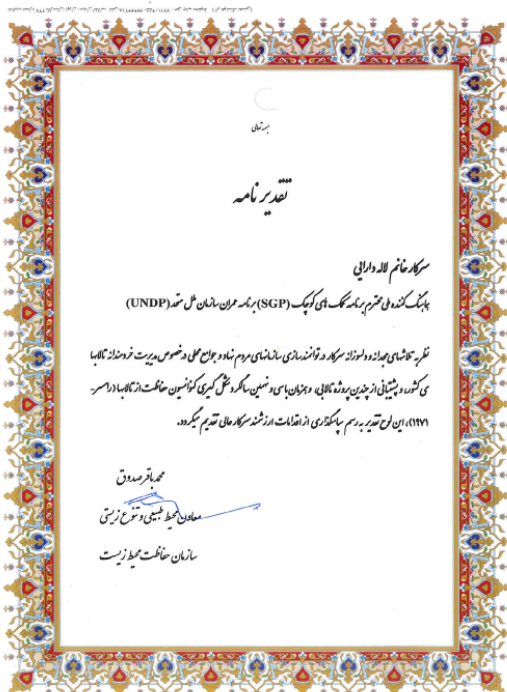 بسمه تعالی
تقدیر نامه
سرکار خانم لاله دارایی
هماهنگ کننده ملی محترم برنامه کمک های کوچک (SGP) برنامه عمران سازمان ملل متحد (UNDP)
نظر به تلاشهای مجدانه و دلسوزانه سرکار در توانمندسازی سازمانهای مردم نهاد و جوامع محلی در خصوص مدیریت خردمندانه تالابها
ی کشور، و پشتیبانی از چندین پروژه تالابی، و همزمان با سی و نهمین سالگرد شکل گیری کنوانسیون حفاظت از تالابها (رامسر-
۱۹۷۱)، این لوح تقدیر به رسم سپاسگذاری از اقدامات ارزشمند سرکار عالی تقدیم میگردد.
محمد باقر صدوق
معاون محیط طبیعی و تنوع زیستی
سازمان حفاظت محیط زیست